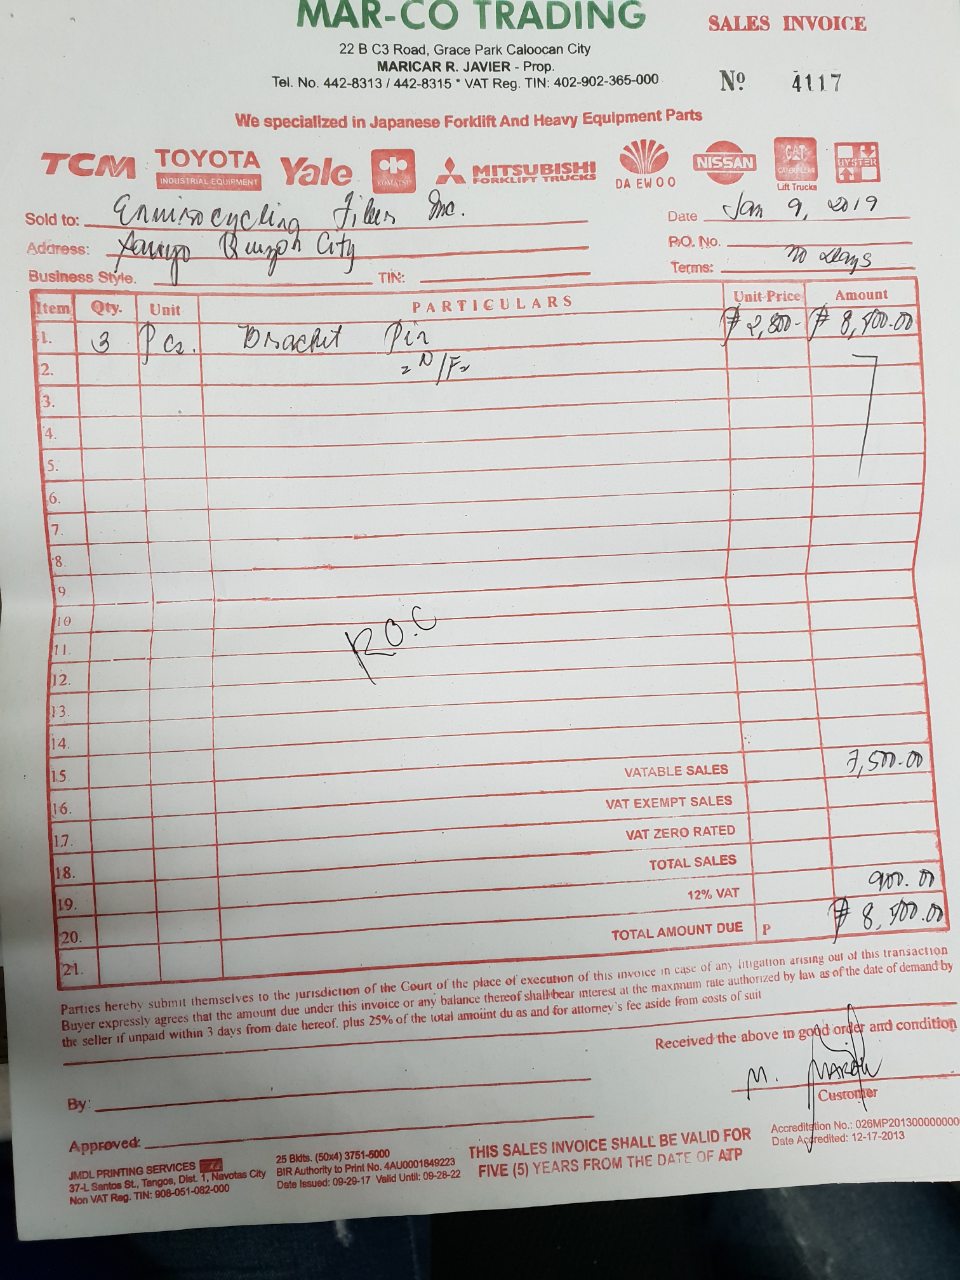 MAR-CO TRADING
SALES INVOICE
22 B C3 Road, Grace Park Caloocan City
MARICAR R. JAVIER - Prop.
Tel. No. 442-8313 / 442-8315 * VAT Reg. TIN: 402-902-365-000
Nº 4117
We specialized in Japanese Forklift And Heavy Equipment Parts
TCM TOYOTA INDUSTRIAL EQUIPMENT Yale KOMATSU MITSUBISHI FORKLIFT TRUCKS DAEWOO NISSAN CAT CATERPILLAR Lift Trucks HYSTER
Sold to: Envirocycling Fiber Inc. Date Jan 9, 2019
Address: Quezon City P.O. No.
Business Style. TIN: Terms: Days
Item Qty. Unit PARTICULARS Unit Price Amount
1. 3 Pcs. Bracket Pin ₱ 2,800- ₱ 8,400.00
2. = N/F =
3.
4.
5.
6.
7.
8.
9
10
R.O.C
11.
12.
13.
14.
15 VATABLE SALES 7,500.00
16. VAT EXEMPT SALES
17. VAT ZERO RATED
18. TOTAL SALES
19. 12% VAT 900.00
20. TOTAL AMOUNT DUE P ₱ 8,400.00
21.
Parties hereby submit themselves to the jurisdiction of the Court of the place of execution of this invoice in case of any litigation arising out of this transaction
Buyer expressly agrees that the amount due under this invoice or any balance thereof shall bear interest at the maximum rate authorized by law as of the date of demand by
the seller if unpaid within 3 days from date hereof. plus 25% of the total amount du as and for attorney's fee aside from costs of suit
Received the above in good order and condition
By: M.
Customer
Approved:
JMDL PRINTING SERVICES
37-L Santos St., Tangos, Dist. 1, Navotas City
Non VAT Reg. TIN: 908-051-082-000
25 Bklts. (50x4) 3751-5000
BIR Authority to Print No. 4AU0001849223
Date Issued: 09-29-17 Valid Until: 09-28-22
THIS SALES INVOICE SHALL BE VALID FOR
FIVE (5) YEARS FROM THE DATE OF ATP
Accreditation No.: 026MP201300000000
Date Accredited: 12-17-2013